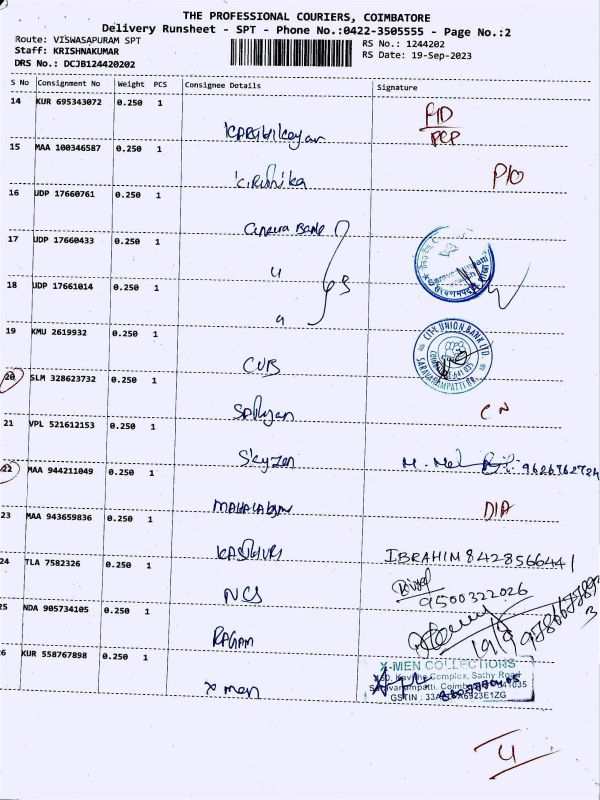 THE PROFESSIONAL COURIERS, COIMBATORE
Delivery Runsheet - SPT - Phone No.:0422-3505555 - Page No.:2
Route: VISWASAPURAM SPT
Staff: KRISHNAKUMAR
DRS No.: DCJB124420202
RS No.: 1244202
RS Date: 19-Sep-2023
S No Consignment No Weight PCS Consignee Details Signature
14 KUR 695343072 0.250 1
15 MAA 100346587 0.250 1
16 UDP 17660761 0.250 1
Canara Bank
17 UDP 17660433 0.250 1
18 UDP 17661014 0.250 1
19 KMU 2619932 0.250 1
CUB
CITY UNION BANK LTD.
SARAVANAMPATTI BR.
20 SLM 328623732 0.250 1
CN
21 VPL 521612153 0.250 1
Skyzen
22 MAA 944211049 0.250 1
DIA
23 MAA 943659836 0.250 1
IBRAHIM 8428566441
24 TLA 7582326 0.250 1
NCS
9500322026
25 NDA 905734105 0.250 1
RAGAM
26 KUR 558767898 0.250 1
X men
X-MEN COLLECTIONS
Kavitha Complex, Sathy Road
Saravanampatti, Coimbatore 641035
4